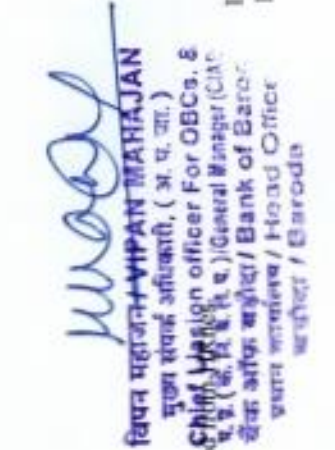 विपन महाजन / VIPAN MAHAJAN
मुख्य संपर्क अधिकारी, ( अ. प. जा. )
Chief Liasion officer For OBCs. &
General Manager
बैंक ऑफ बड़ौदा / Bank of
प्रधान कार्यालय / Head Office
बड़ौदा / Baroda